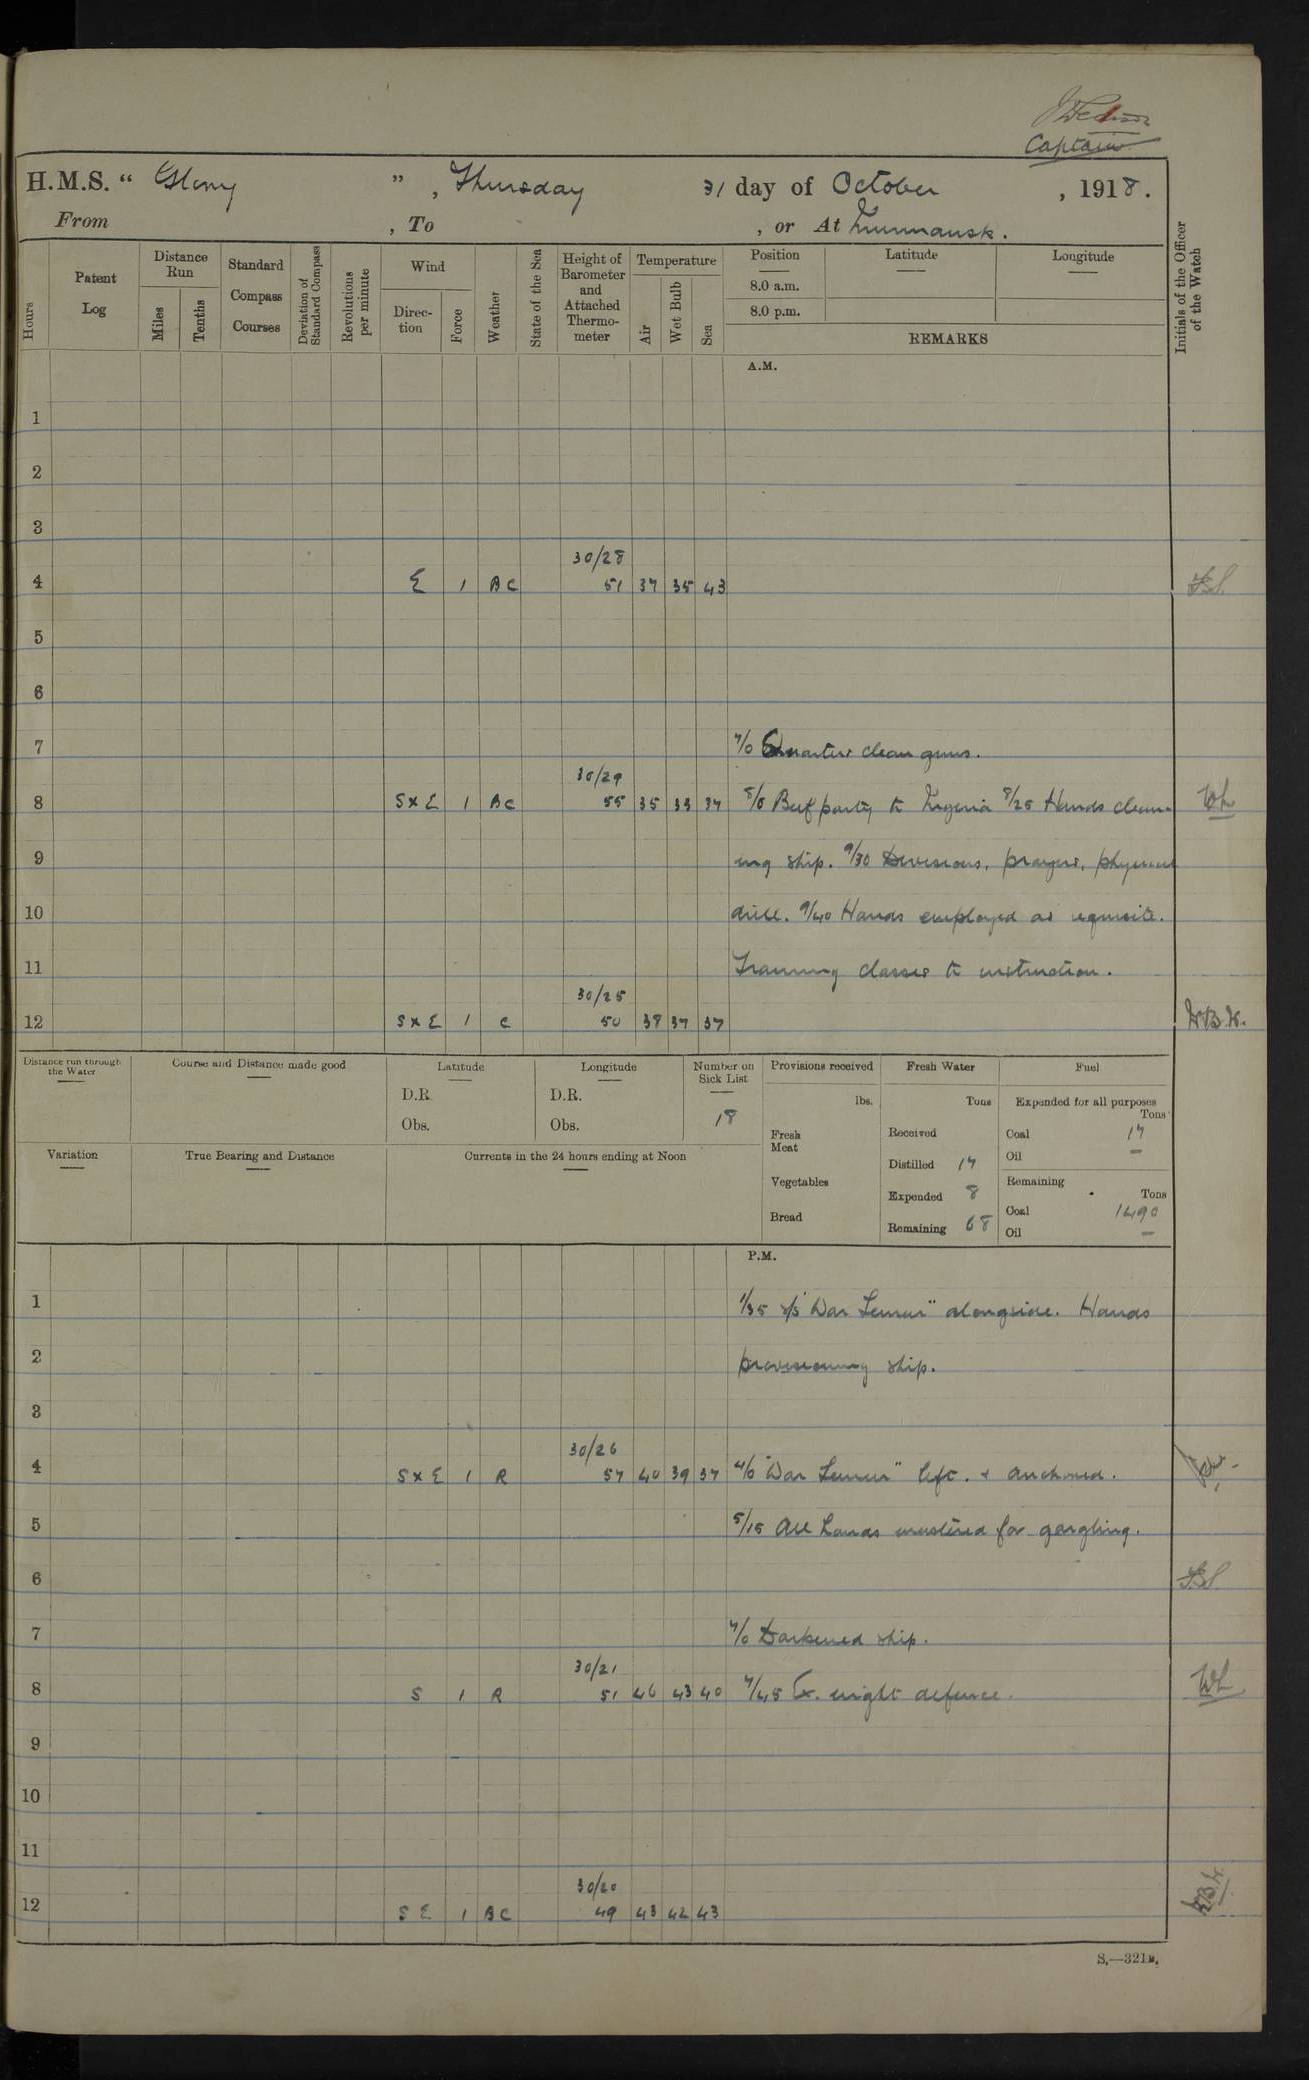 Captain
H.M.S. “ Glory ” , Thursday 31 day of October , 1918.
From , To , or At Murmansk.
Hours
Patent Log
Distance Run
Miles
Tenths
Standard Compass Courses
Deviation of Standard Compass
Revolutions per minute
Wind
Direction
Force
Weather
State of the Sea
Height of Barometer and Attached Thermometer
Temperature
Air
Wet Bulb
Sea
Position
8.0 a.m.
8.0 p.m.
Latitude
Longitude
REMARKS
Initials of the Officer of the Watch
A.M.
1
2
3
30/28
4 E 1 BC 51 37 35 43
5
6
7 7/0 Quarters clean guns.
30/29
8 S x E 1 BC 55 35 33 37 8/0 Beef party to Nigeria 8/25 Hands clean-
9 ing ship. 9/30 Divisions, prayers, physical
10 drill. 9/40 Hands employed as requisite.
11 Training classes to instruction.
30/25
12 S x E 1 C 50 38 37 37
Distance run through the Water
Course and Distance made good
Latitude
D.R.
Obs.
Longitude
D.R.
Obs.
Number on Sick List
18
Provisions received
lbs.
Fresh Meat
Vegetables
Bread
Fresh Water
Tons
Received
Distilled 17
Expended 8
Remaining 68
Fuel
Expended for all purposes
Tons
Coal 17
Oil –
Remaining
Tons
Coal 1490
Oil –
Variation
True Bearing and Distance
Currents in the 24 hours ending at Noon
P.M.
1 1/35 s/s "War Lemur" alongside. Hands
2 provisioning ship.
3
30/26
4 S x E 1 R 57 40 39 37 4/0 "War Lemur" left. & anchored.
5 5/15 All hands mustered for gargling.
6
7 7/0 Darkened ship.
30/21
8 S 1 R 51 46 43 40 7/45 Ex. night defence.
9
10
11
30/20
12 S E 1 BC 49 43 42 43
S.—321B.